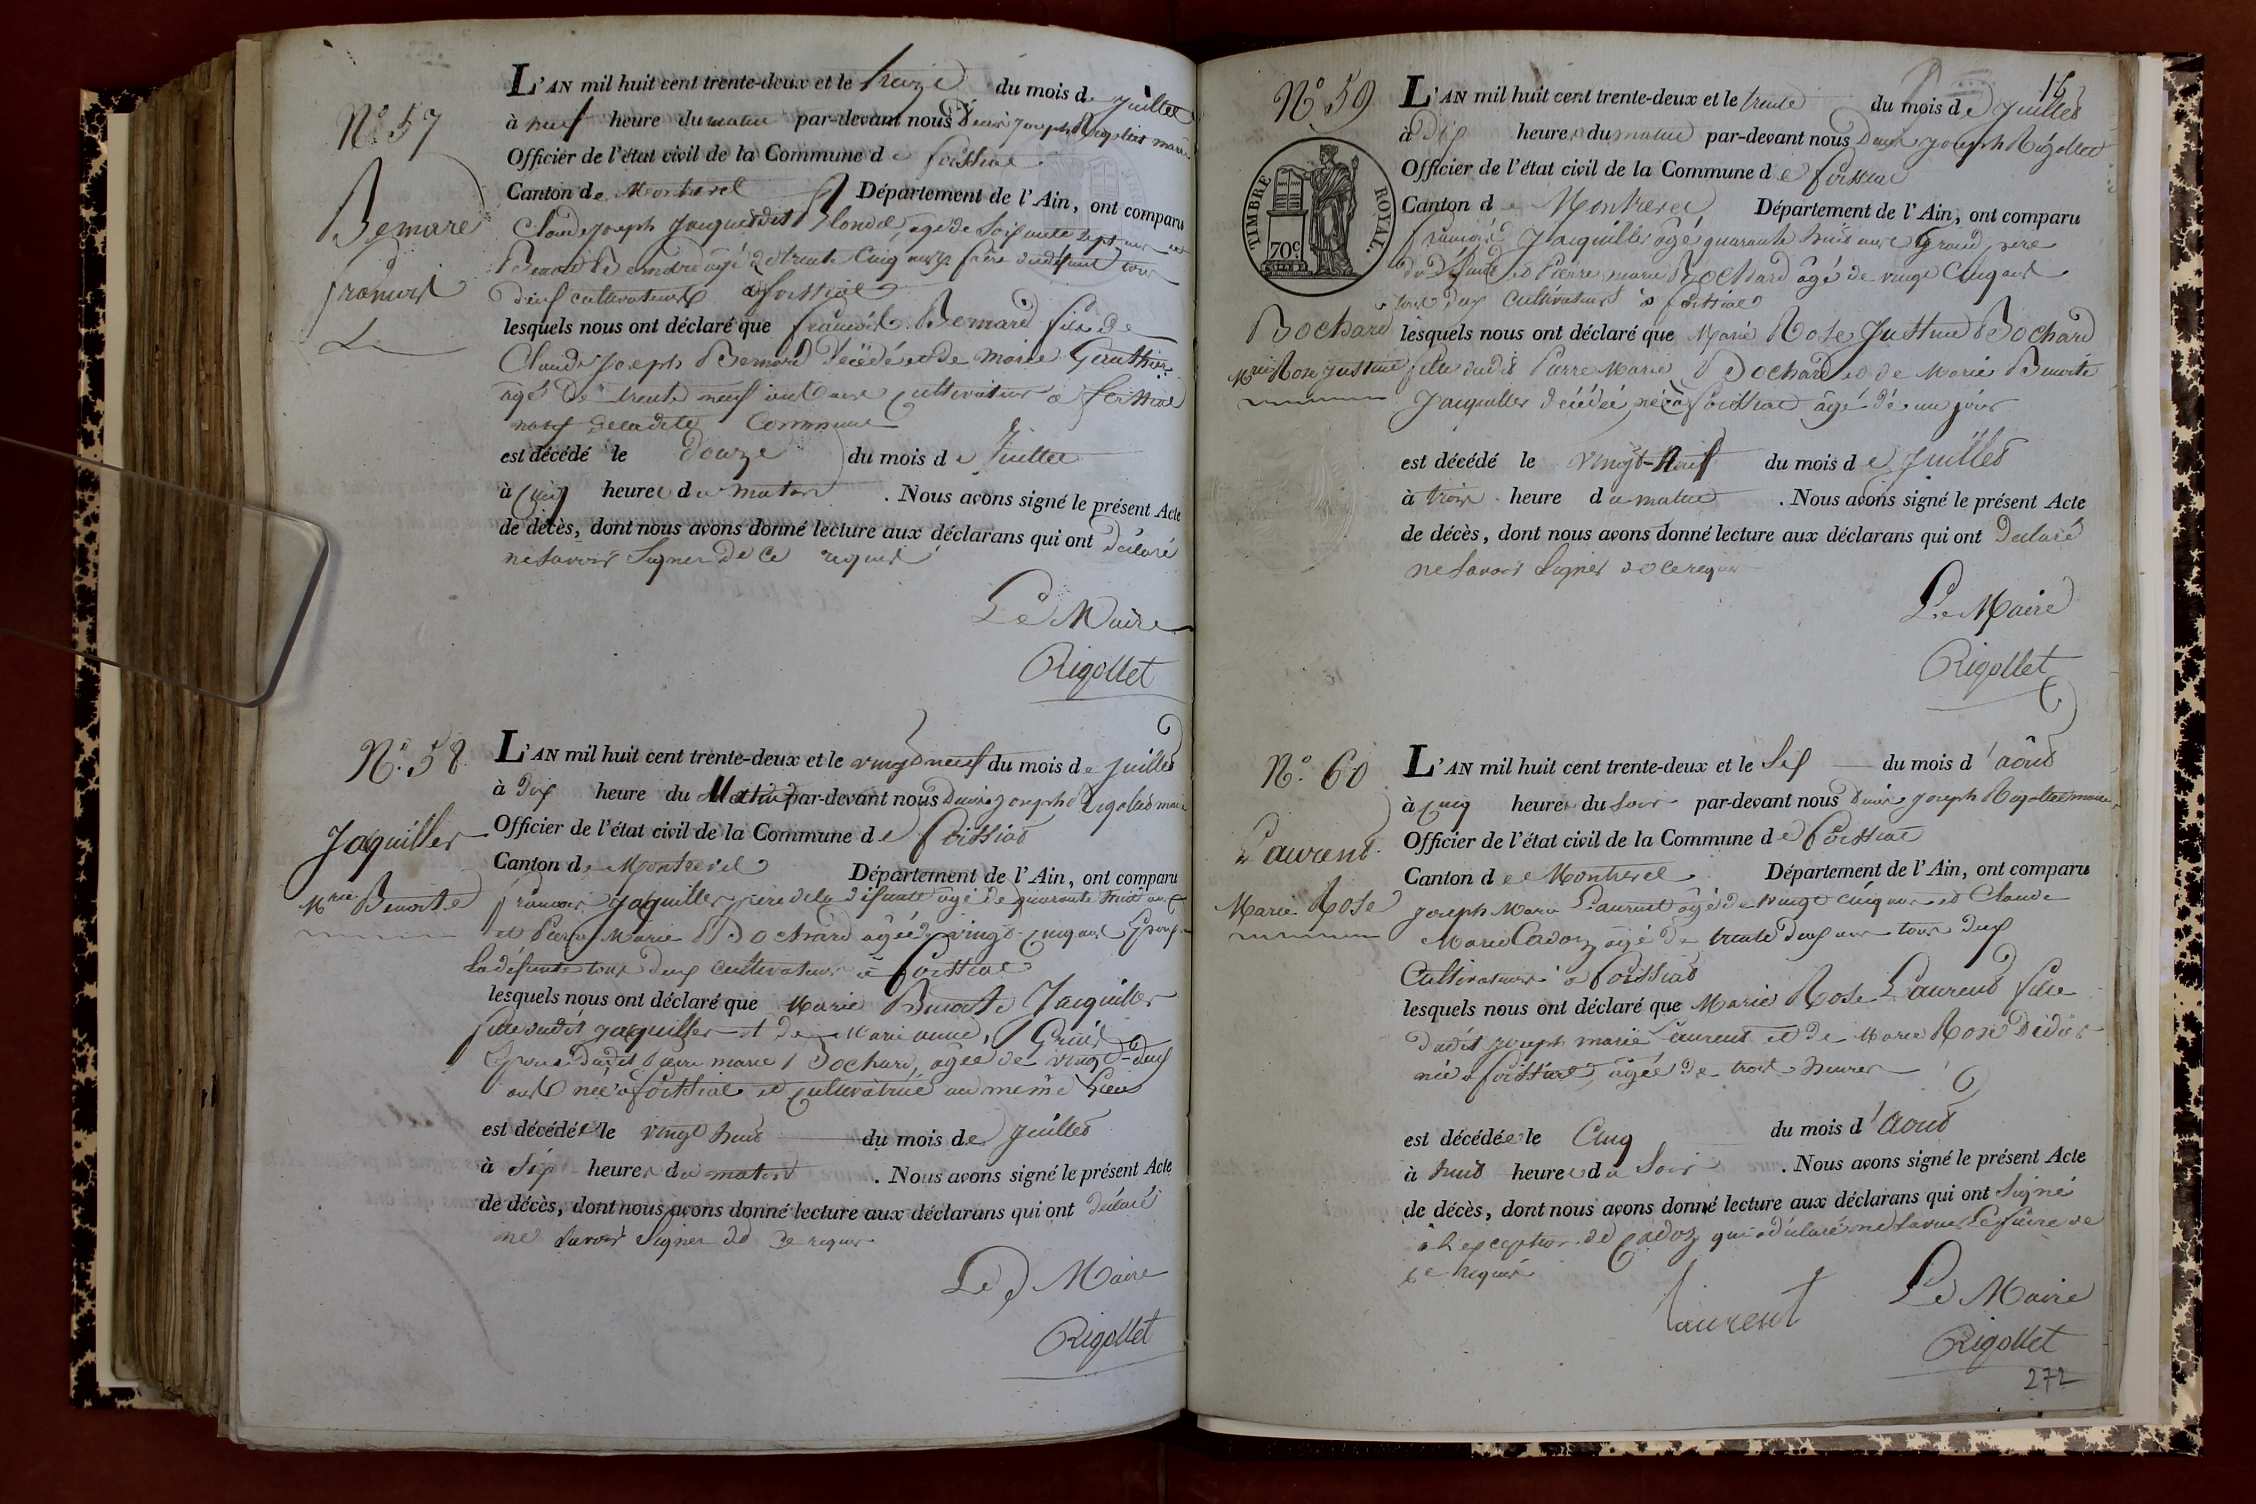 N° 57
Bemard
françois
L'AN mil huit cent trente-deux et le treize du mois de Juillet
à neuf heure du matin par-devant nous Denis Joseph Rigolet maire
Officier de l'état civil de la Commune de foissiat
Canton de Montrevel Département de l'Ain, ont comparu
Claude Joseph Jacquet dit Blondel, agé de Soixante sept ans et
Bemard agé de trente Cinq ans frère du défunt tous
deux cultivateurs a foissiat
lesquels nous ont déclaré que françois Bemard fils de
Claude Joseph Bemard décédé et de Marie Gauthier
agé de trente neuf ans cultivateur a foissiat
natif de ladite Commune
est décédé le douze du mois de Juillet
à Cinq heures du matin . Nous avons signé le présent Acte
de décès, dont nous avons donné lecture aux déclarans qui ont déclaré
ne savoir Signer de Ce requis
Le Maire
Rigollet
N° 58
Jaquiller
Mrie Benoite
L'AN mil huit cent trente-deux et le vingt neuf du mois de Juillet
à dix heure du Matin par-devant nous Denis Joseph Rigolet maire
Officier de l'état civil de la Commune de foissiat
Canton de Montrevel Département de l'Ain, ont comparu
françois Jaquiller père de la défunte agé de quarante huit ans
et Pierre Marie Bochard agé de vingt cinq ans Epoux
la défunte tous deux cultivateurs à Foissiat
lesquels nous ont déclaré que Marie Benoite Jaquiller
fille dudit Jaquiller et de Marie anne
Epouse dudit Pierre marie Bochard, agée de vingt-deux
ans née à foissiat et cultivatrice au même Lieu
est décédée le vingt huit du mois de Juillet
à Sept heures du matin . Nous avons signé le présent Acte
de décès, dont nous avons donné lecture aux déclarans qui ont déclaré
ne savoir Signer de Ce requis
Le Maire
Rigollet
N° 59
TIMBRE ROYAL.
70 c.
Bochard
Mrie Rose Justine
L'AN mil huit cent trente-deux et le trente du mois de Juillet
à Dix heures du matin par-devant nous Denis Joseph Rigollet
Officier de l'état civil de la Commune de foissiat
Canton de Montrevel Département de l'Ain, ont comparu
françois Jaquiller âgé quarante huit ans Grand père
du défunt et Pierre marie Bochard âgé de vingt Cinq ans
tous deux Cultivateurs à foissiat
lesquels nous ont déclaré que Marie Rose Justine Bochard
fille dudit Pierre Marie Bochard et de Marie Benoite
Jaquiller décédée, née à Foissiat âgé de un jour
est décédé le vingt-Neuf du mois de Juillet
à trois heure du matin . Nous avons signé le présent Acte
de décès, dont nous avons donné lecture aux déclarans qui ont Déclaré
ne savoir Signer de Ce requis
Le Maire
Rigollet
N° 60
Laurent
Marie Rose
L'AN mil huit cent trente-deux et le Six du mois d'août
à Cinq heures du Soir par-devant nous Denis Joseph Rigollet maire
Officier de l'état civil de la Commune de Foissiat
Canton de Montrevel Département de l'Ain, ont comparu
Joseph Marie Laurent âgé de vingt Cinq ans et Claude
Marie Cadoz âgé de trente deux ans tous deux
Cultivateurs à Foissiat
lesquels nous ont déclaré que Marie Rose Laurent fille
dudit Joseph marie Laurent et de Marie Rose Didier
née à foissiat, agée de trois heures
est décédée le Cinq du mois d'Août
à huit heures du Soir . Nous avons signé le présent Acte
de décès, dont nous avons donné lecture aux déclarans qui ont Signé
à l'exception de Cadoz qui a déclaré ne Savoir Le faire de
Ce Requis
Laurent
Le Maire
Rigollet
272